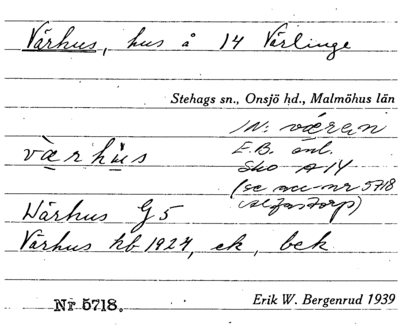 Vårhus, hus å 14 Vårlinge
Stehags sn., Onsjö hd., Malmöhus län
vàrhùs
E.B. enl.
Sko A 14
(se acc-nr 5718
Wårhus G 5
Vårhus kb 1924, ek, bek
Nr 5718.
Erik W. Bergenrud 1939